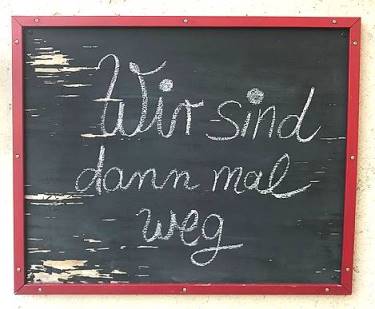 Wir sind
dann mal
weg